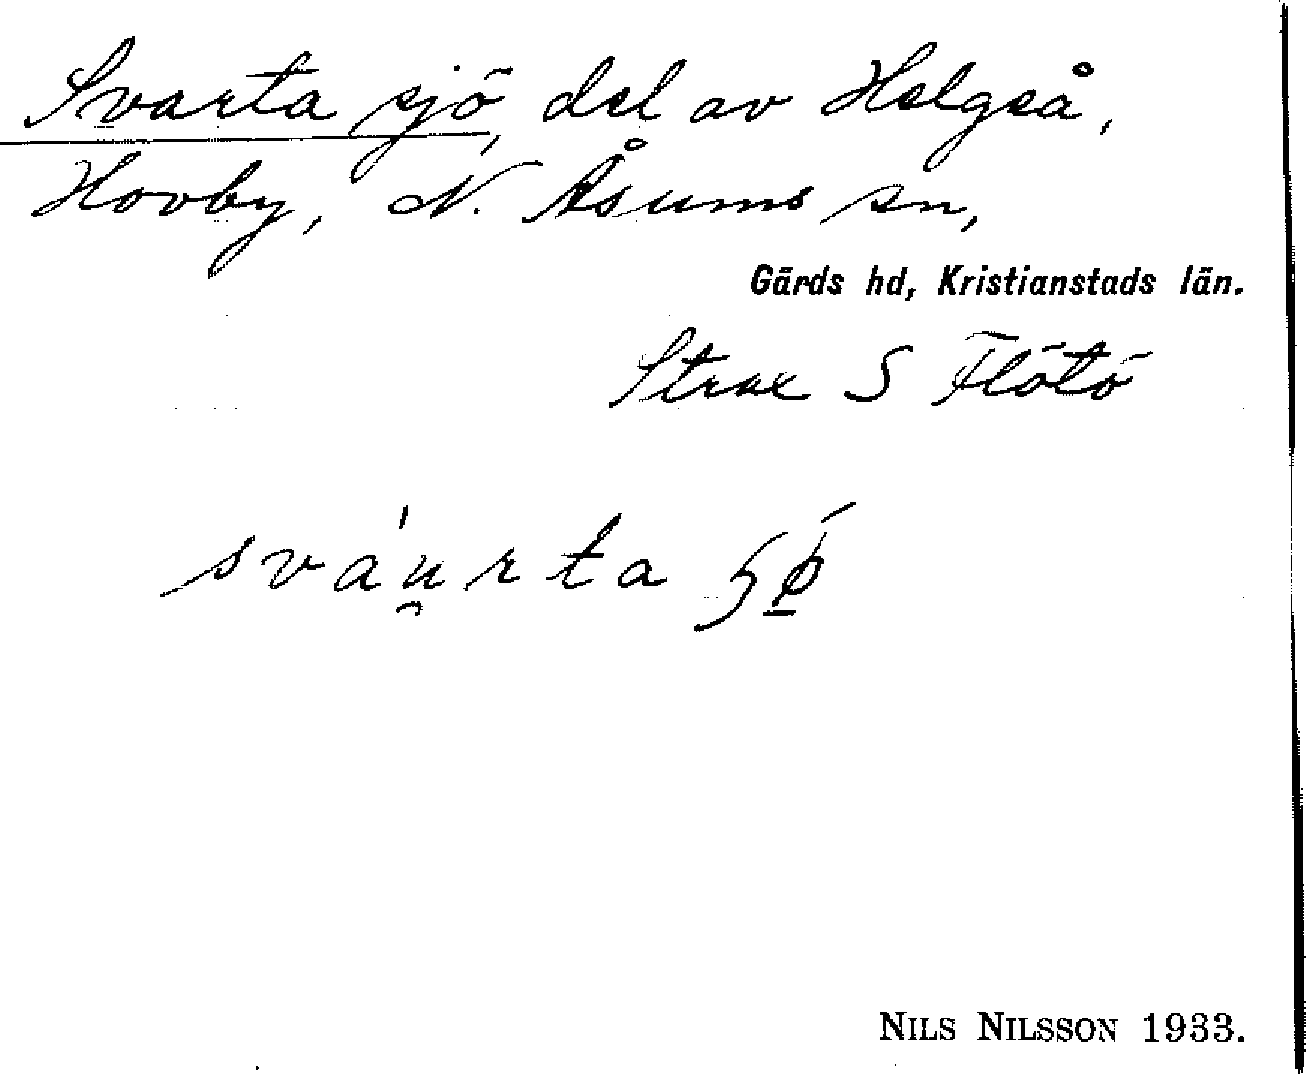 Svarta sjö, del av Helgeå,
Hovby, N. Åsums sn,
Gärds hd, Kristianstads län.
Strax S Flötö
svau̯rta
NILS NILSSON 1933.